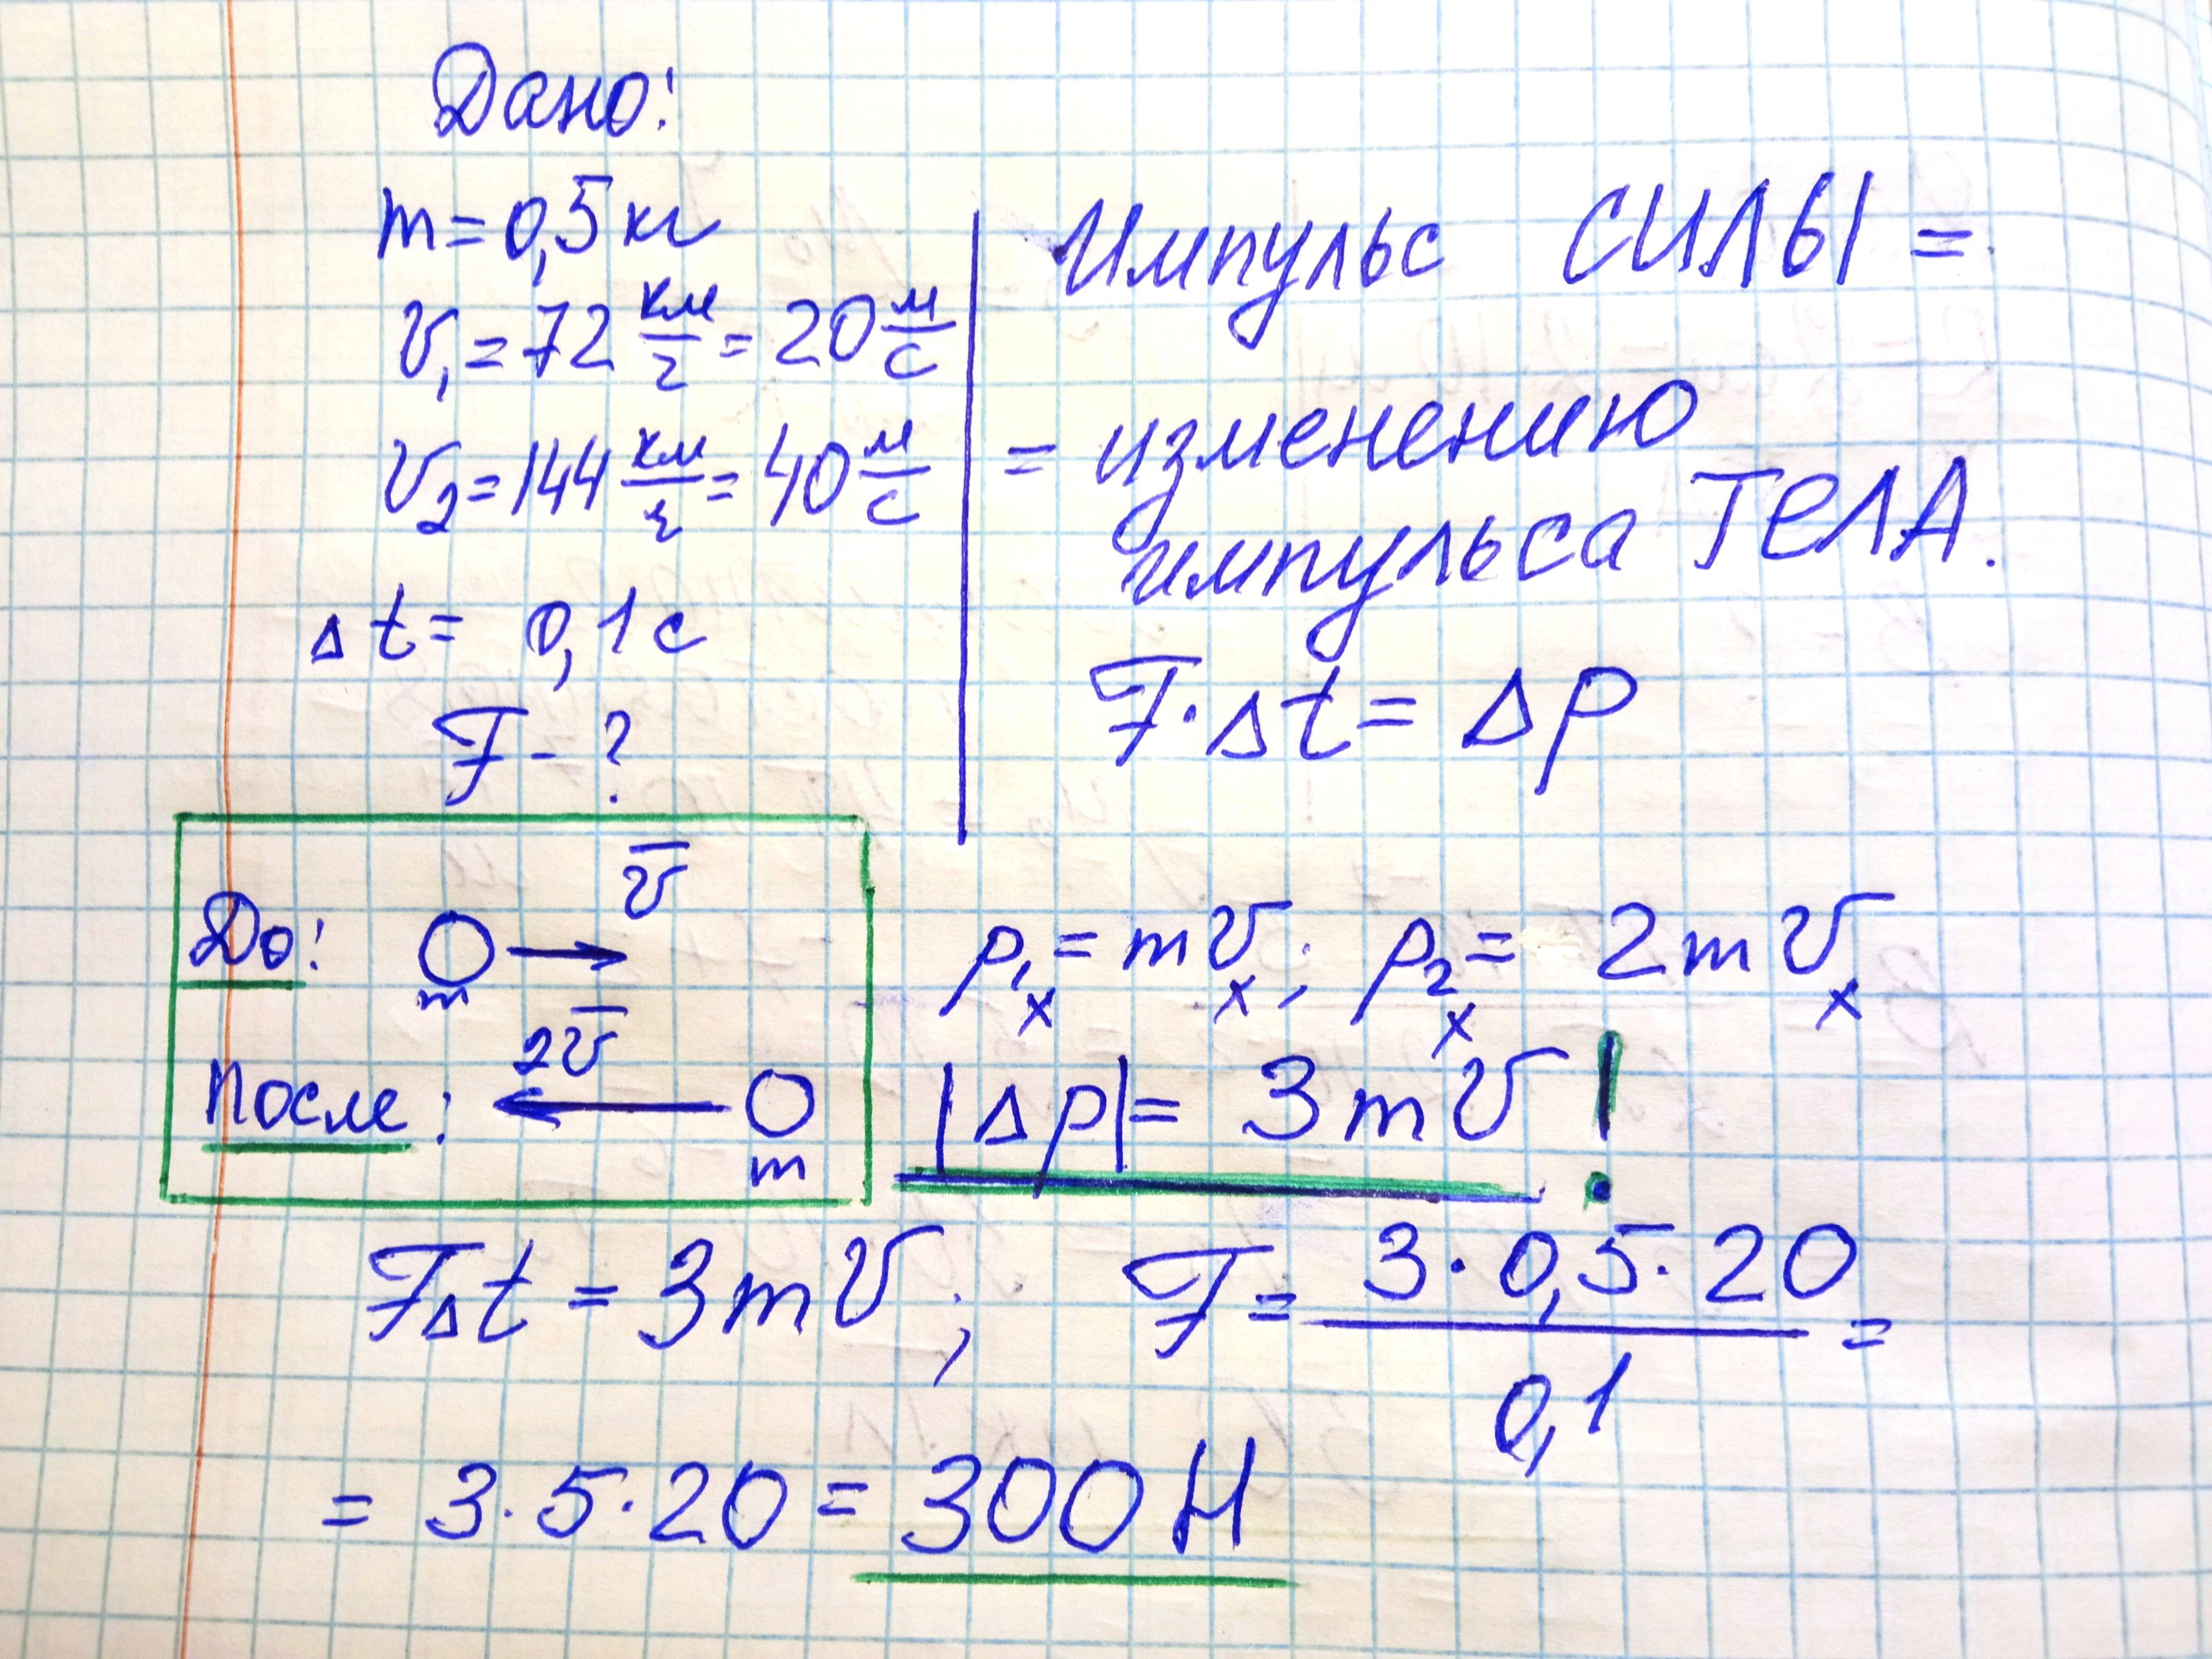 Дано:
m = 0,5 кг
v₁ = 72 км/г = 20 м/с
v₂ = 144 км/г = 40 м/с
Δt = 0,1 с
F - ?
Импульс СИЛЫ =
= изменению
импульса ТЕЛА.
F · Δt = Δp
До: m v̅
После: 2v̅ m
p₁ₓ = mvₓ; p₂ₓ = 2mvₓ
|Δp| = 3mv !
FΔt = 3mv; F = 3 · 0,5 · 20 / 0,1 =
= 3 · 5 · 20 = 300 Н